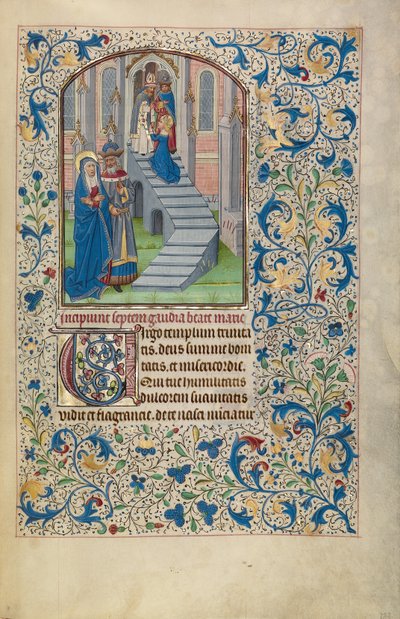 Incipiunt septem gaudia beate marie
Virgo templum trinita
tis. deus summe boni
tatis, et misericordie.
Qui tue humilitatis
dulcorem suavitatis
vidit et fragrancie. de te nasci nunciatur